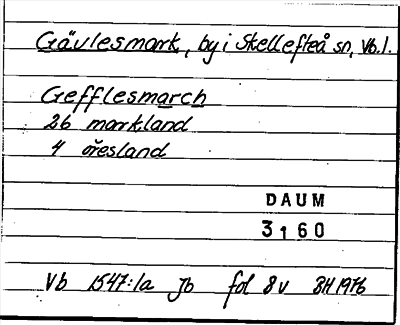 Gävlesmark, by i Skellefteå sn, Vb.l.
Gefflesmarch
26 markland
4 öresland
DAUM
3160
Vb 1547:1a Jb fol 8v BH 1976